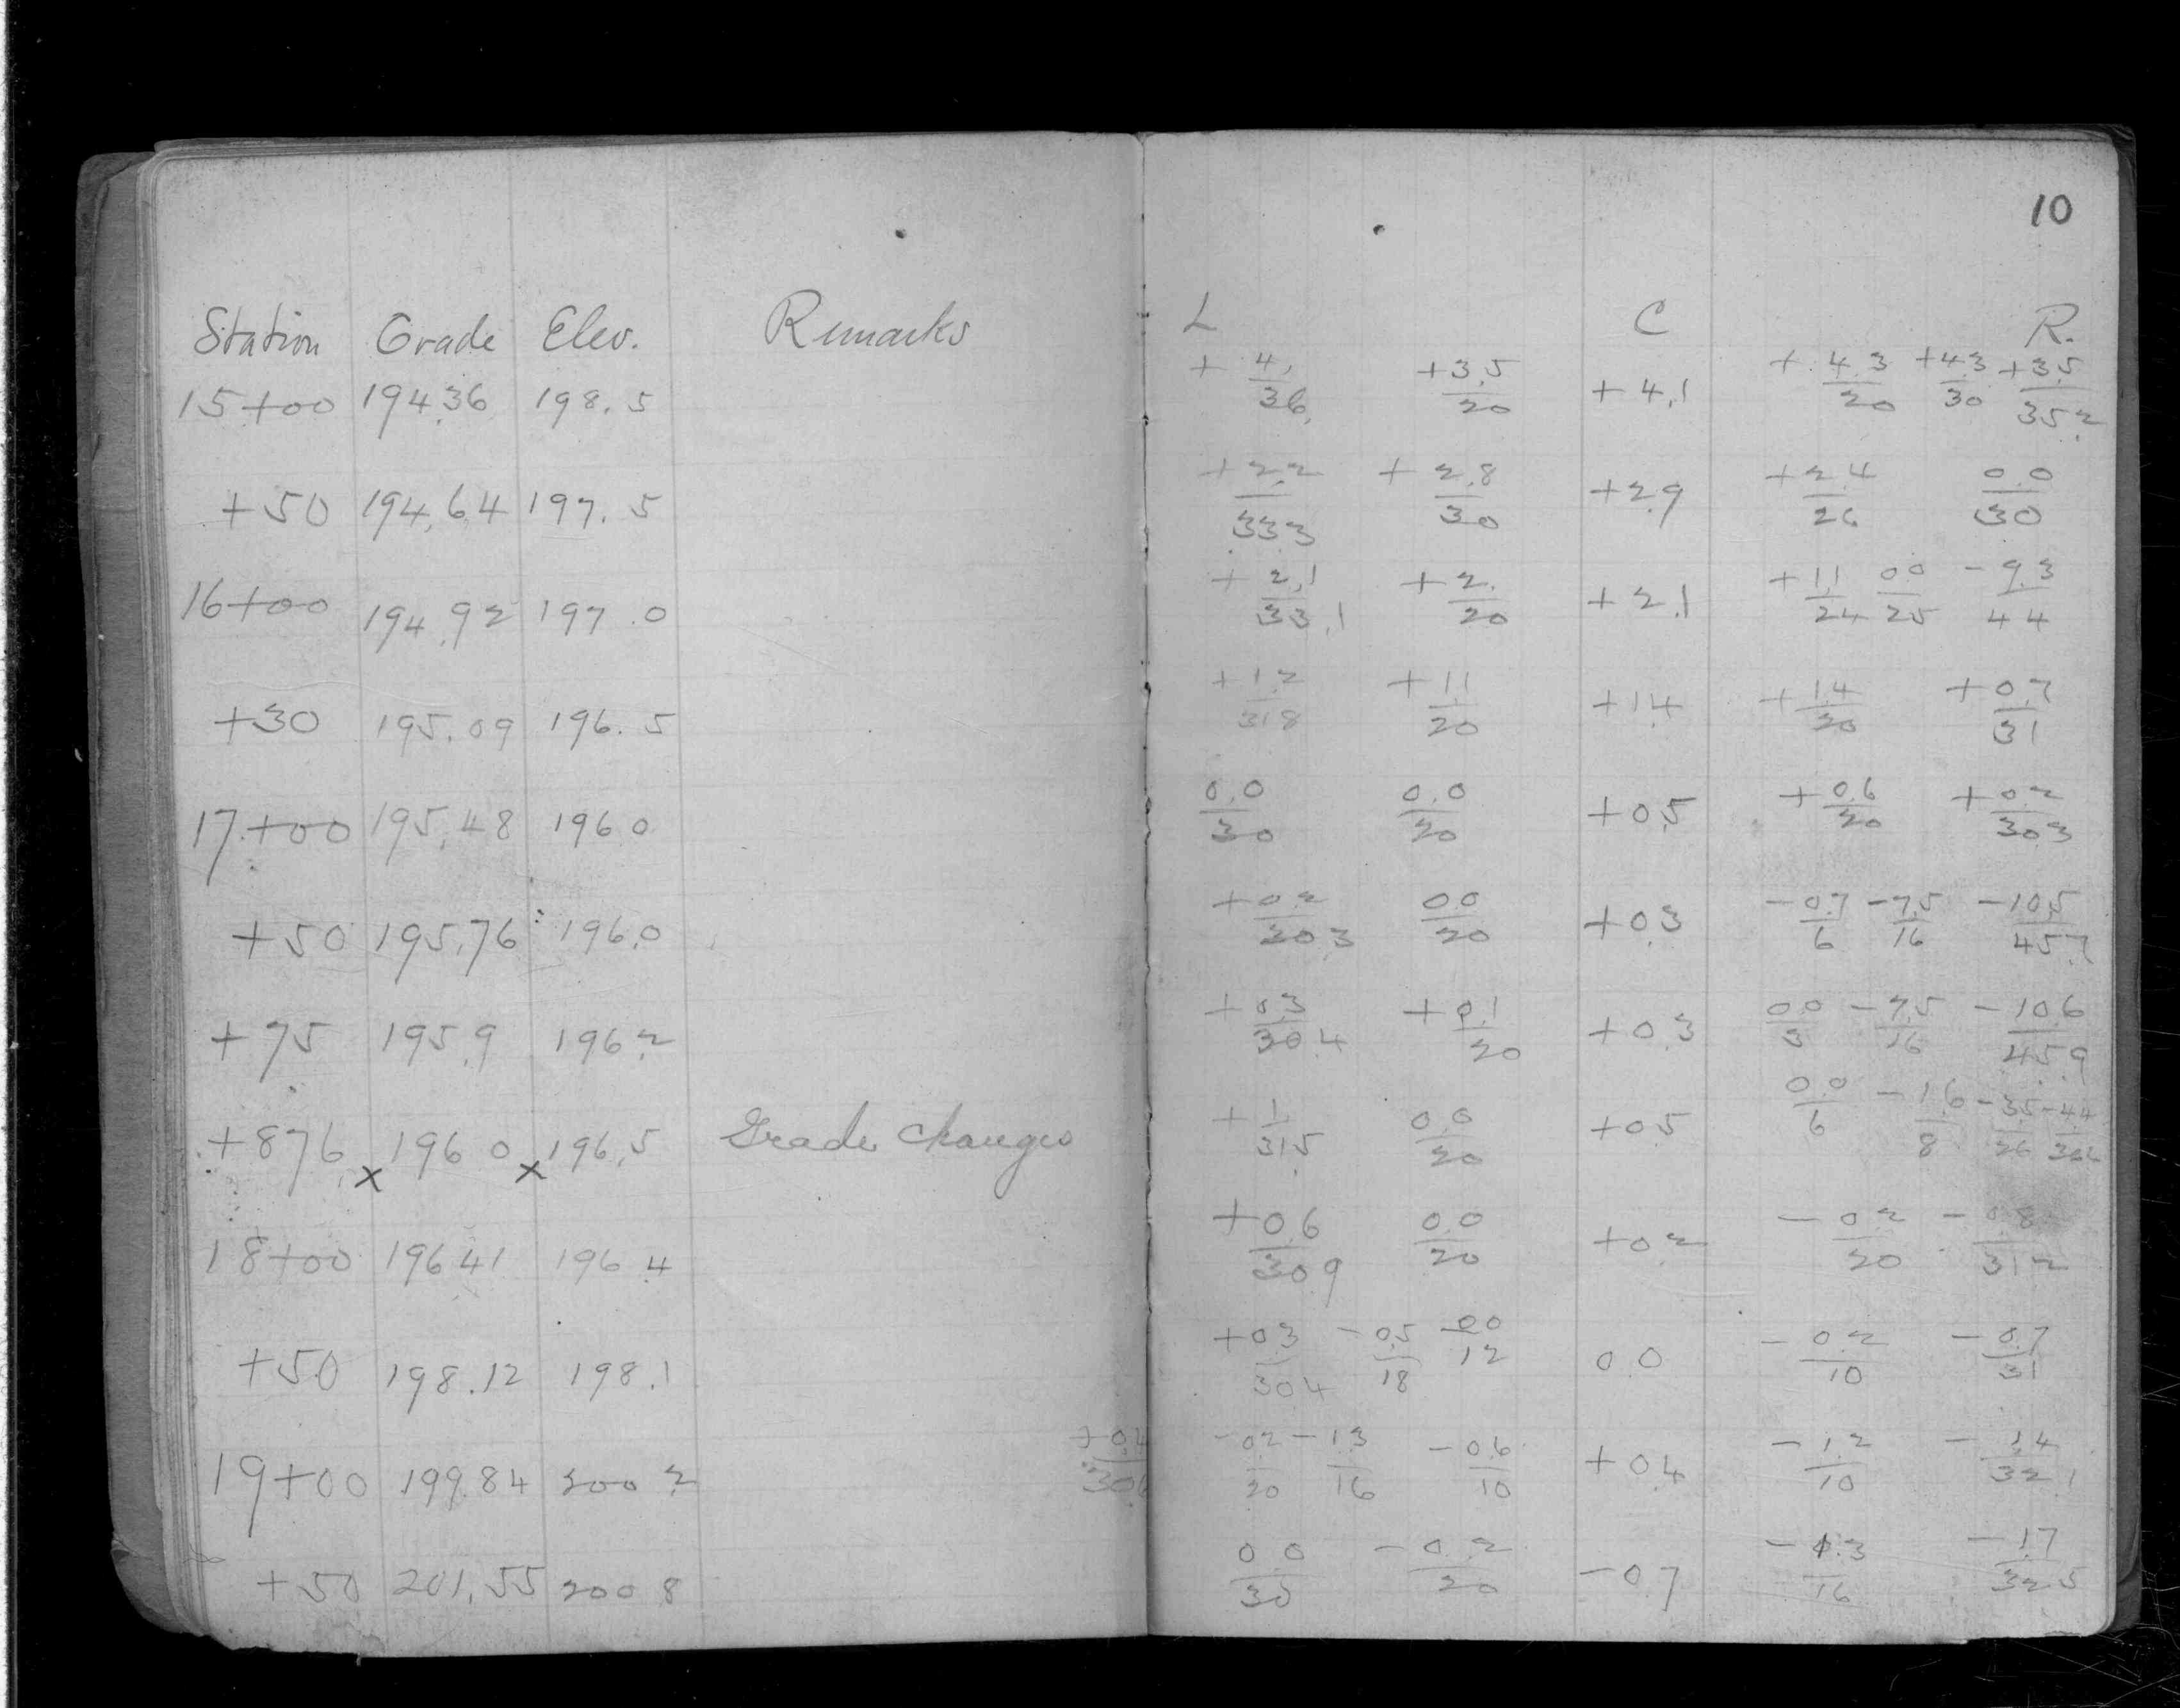 10
Station Grade Elev. Remarks L C R.
15+00 194.36 198.5 +4./36. +3.5/20 +4.1 +4.3/20 +4.3/30 +3.5/35.2
+50 194.64 197.5 +2.2/33.3 +2.8/30 +2.9 +2.4/26 0.0/30
16+00 194.92 197.0 +2.1/33.1 +2./20 +2.1 +1.1/24 0.0/25 -9.3/44
+30 195.09 196.5 +1.2/31.8 +1.1/20 +1.4 +1.4/20 +0.7/31
17+00 195.48 196.0 0.0/30 0.0/20 +0.5 +0.6/20 +0.2/30.3
+50 195.76 196.0 +0.2/30.3 0.0/20 +0.3 -0.7/6 -7.5/16 -10.5/45.7
+75 195.9 196.2 +0.3/30.4 +0.1/20 +0.3 0.0/3 -7.5/16 -10.6/45.9
+87.6 x 196.0 x 196.5 Grade Changes +1./31.5 0.0/20 +0.5 0.0/6 -1.6/8 -3.5/26 -4.4
18+00 196.41 196.4 +0.6/30.9 0.0/20 +0.2 -0.2/20 -0.8/31.2
+50 198.12 198.1 +0.3/30.4 -0.5/18 0.0/12 0.0 -0.2/10 -0.7/31
19+00 199.84 200.2 +0.4/30.6 -0.2/20 -1.3/16 -0.6/10 +0.4 -1.2/10 -1.4/32.1
+50 201.55 200.8 0.0/30 -0.2/20 -0.7 -1.3/16 -1.7/32.5